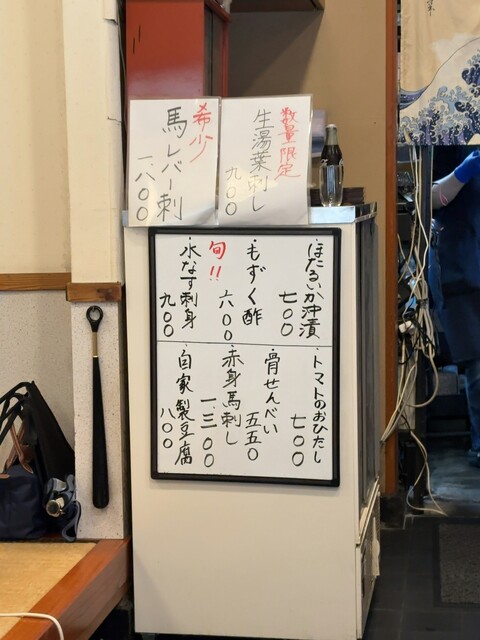 数量限定
生湯葉刺し
九〇〇
希少
馬レバー刺
一、八〇〇
・ほたるいか沖漬
七〇〇
・もずく酢
六〇〇
旬!!
・水なす刺身
九〇〇
・トマトのおひたし
七〇〇
・骨せんべい
五五〇
・赤身馬刺し
一、三〇〇
・自家製豆腐
八〇〇